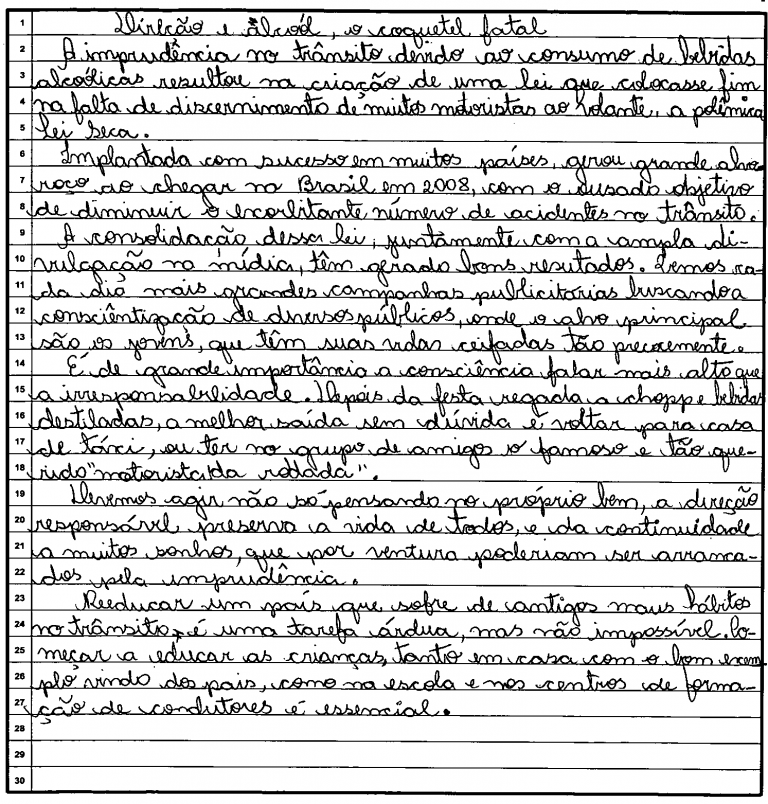 1 Direção e álcool, o coquetel fatal
2 A imprudência no trânsito devido ao consumo de bebidas
3 alcoólicas resultou na criação de uma lei que colocasse fim
4 na falta de discernimento de muitos motoristas ao volante, a polêmica
5 lei seca.
6 Implantada com sucesso em muitos países, gerou grande alvo-
7 roço ao chegar no Brasil em 2008, com o ousado objetivo
8 de diminuir o exorbitante número de acidentes no trânsito.
9 A consolidacão dessa lei, juntamente com a ampla di-
10 vulgação na mídia, têm gerado bons resutados. Temos ca-
11 da dia mais grandes campanhas publicitárias buscando a
12 consciêntização de diversos públicos, onde o alvo principal
13 são os jovens, que têm suas vidas ceifadas tão precoremente.
14 É de grande importância a consciência falar mais alto que
15 a irresponsabilidade. Depois da festa regada a chopp e bebidas
16 destiladas, a melhor saída sem dúvida é voltar para casa
17 de táxi, ou ter no grupo de amigos o famoso e tão que-
18 rido "motorista da rodada".
19 Devemos agir não só pensando no próprio bem, a direção
20 responsável preserva a vida de todos, e da continuidade
21 a muitos sonhos, que por ventura poderiam ser arranca-
22 dos pela imprudência.
23 Reeducar um país que sofre de antigos maus hábitos
24 no trânsito, é uma tarefa árdua, mas não impossível. Co-
25 meçar a educar as crianças, tanto em casa com o bom exem
26 plo vindo dos pais, como na escola e nos centros de forma-
27 ção de condutores é essencial.
28
29
30